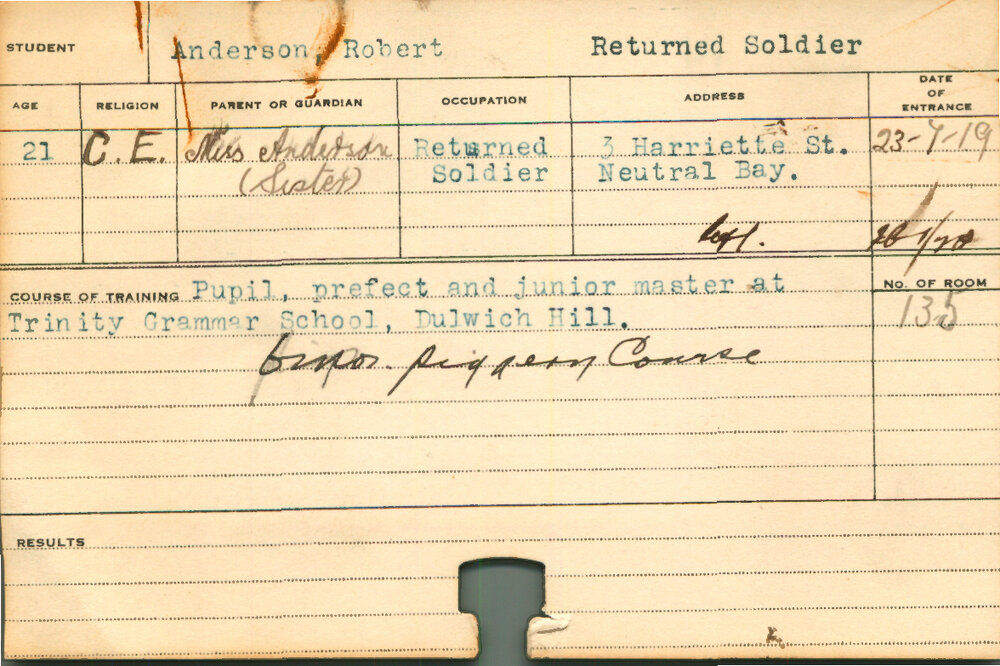 STUDENT Anderson, Robert Returned Soldier
AGE RELIGION PARENT OR GUARDIAN OCCUPATION ADDRESS DATE OF ENTRANCE
21 C.E. Miss Anderson Returned 3 Harriette St. 23-7-19
(Sister) Soldier Neutral Bay.
left.
COURSE OF TRAINING Pupil, prefect and junior master at No. OF ROOM
Trinity Grammar School, Dulwich Hill. 135
Course
RESULTS